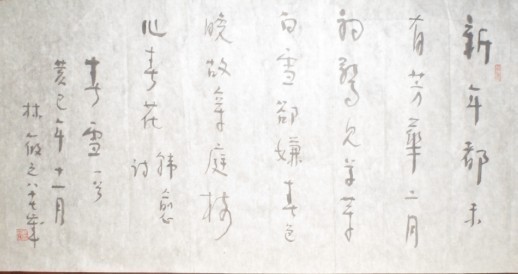 新年都未
有芳華二月
初驚見草芽
白雪卻嫌春色
晚故穿庭樹
花
韓愈
詩
春雪一首
癸巳年十一月
林筱之